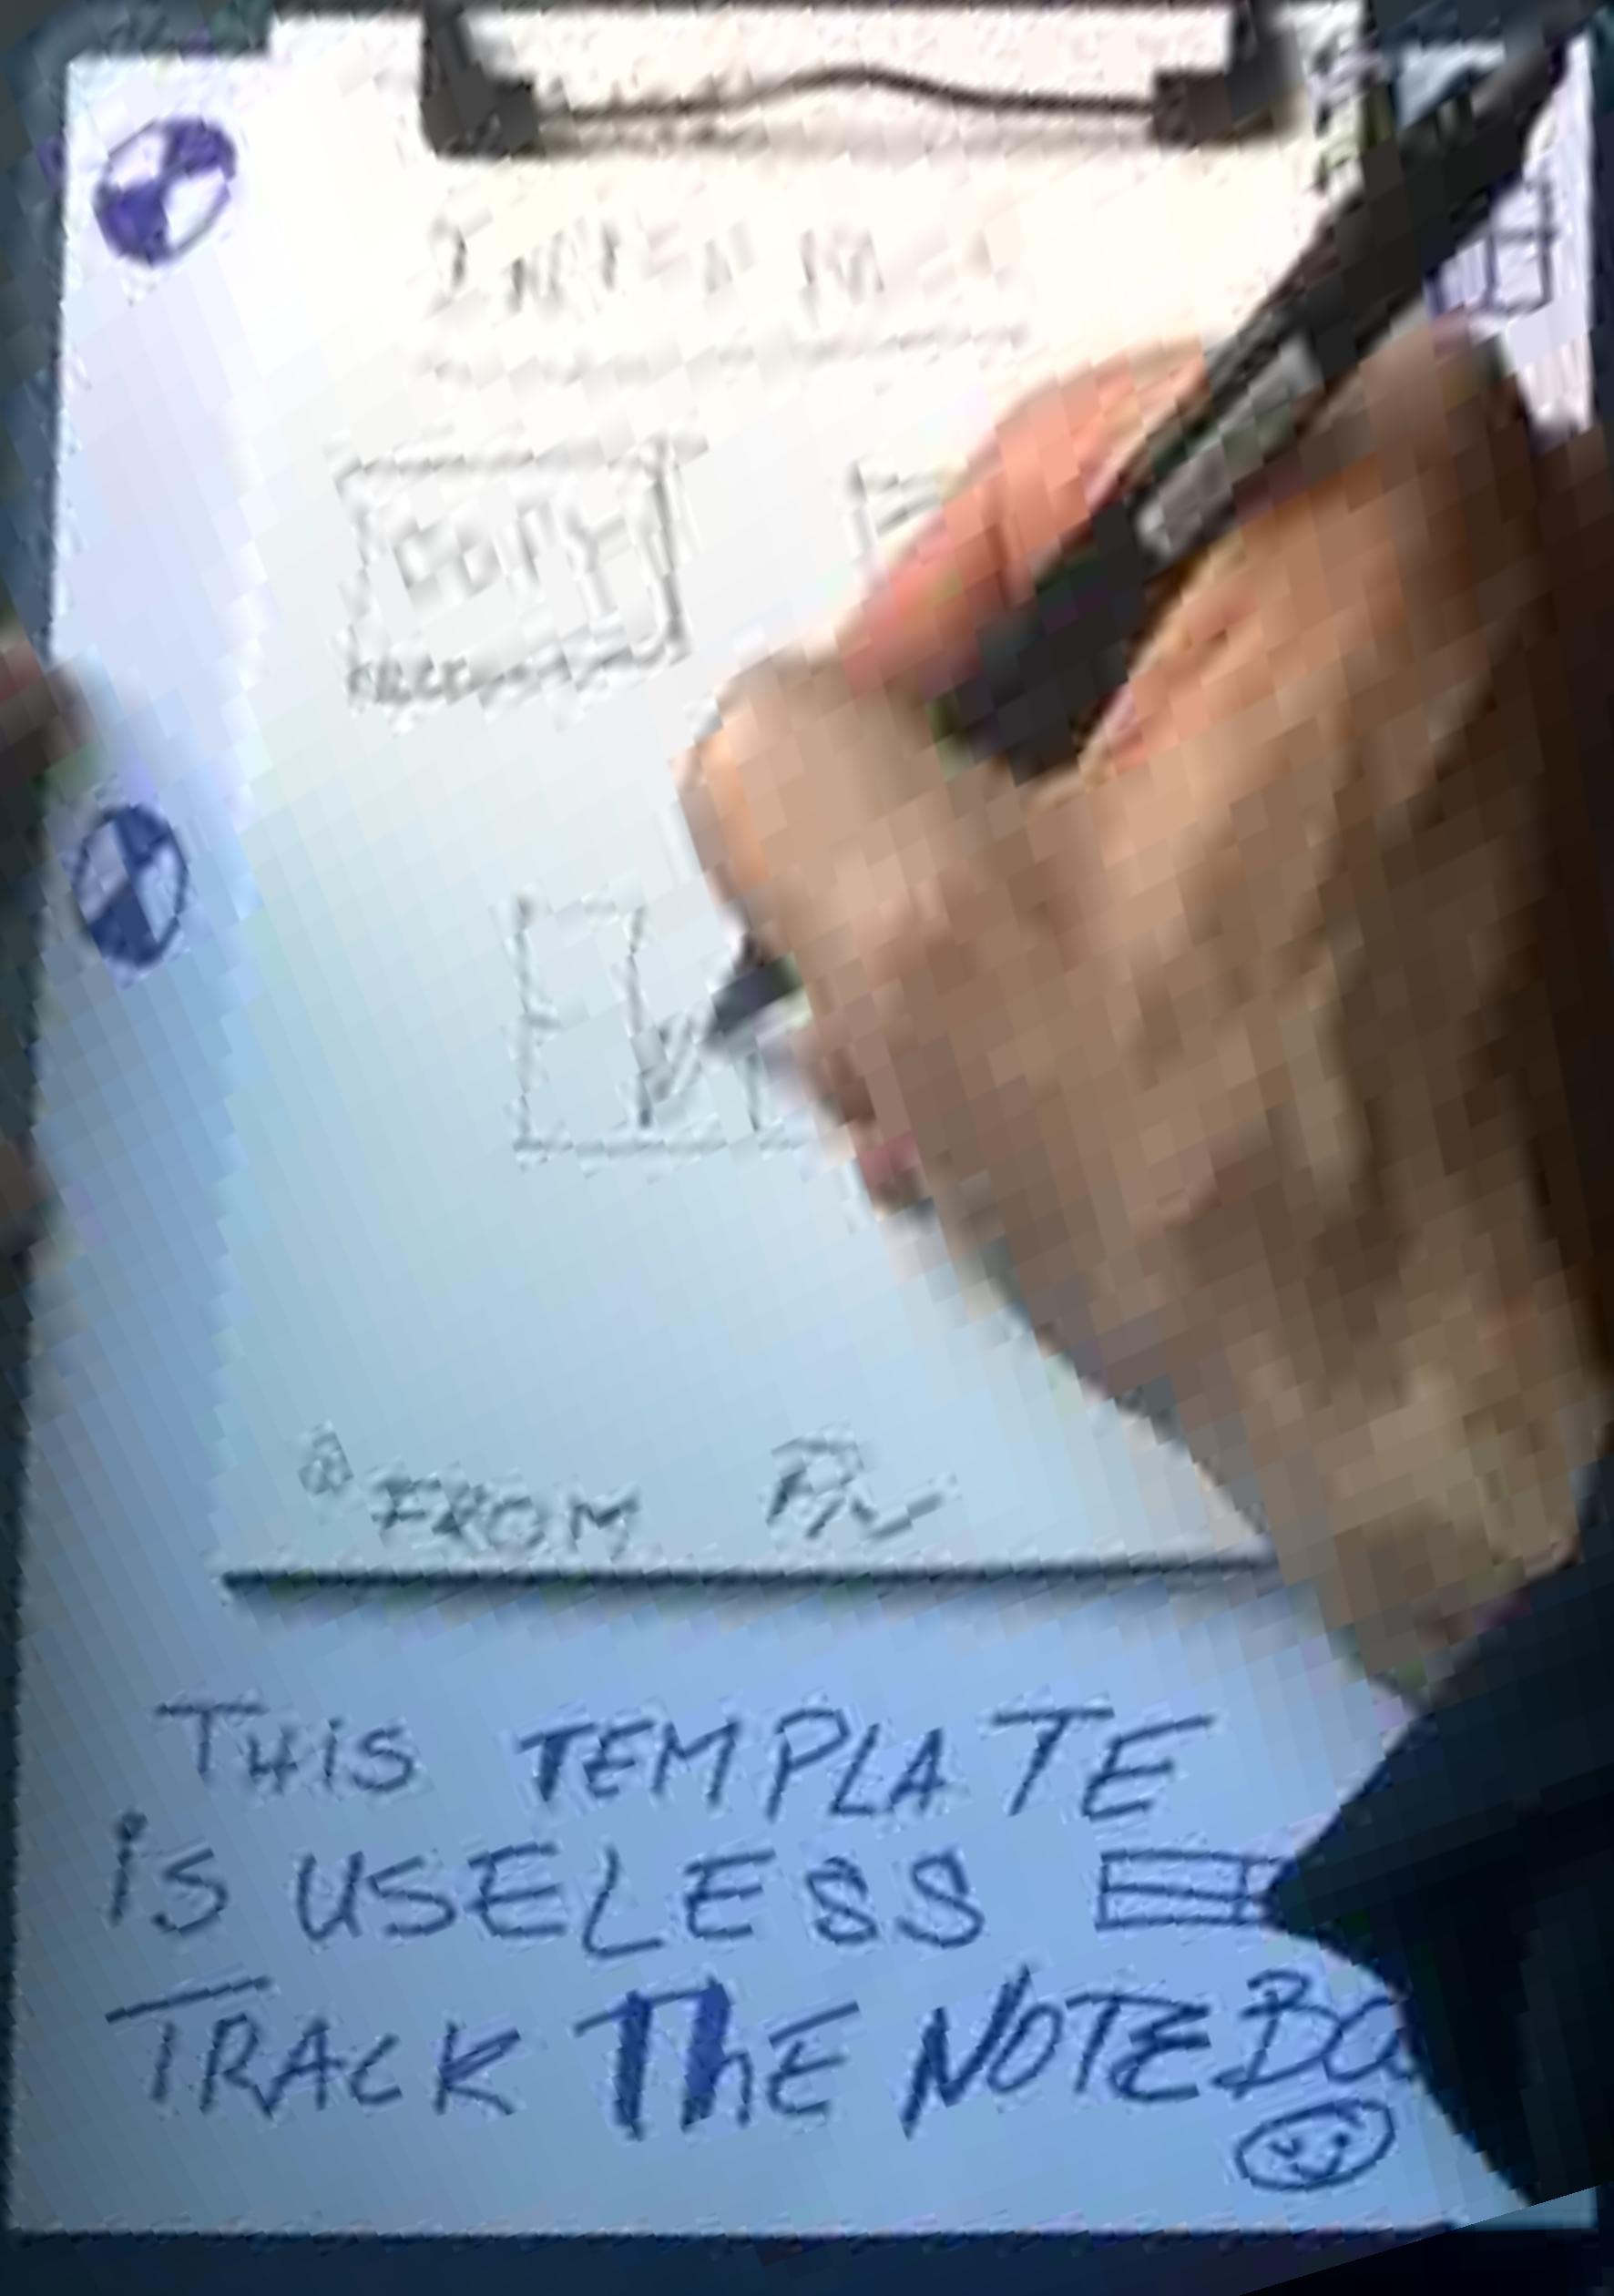 COPY
FROM
THiS TEMPLATE
iS USELESS
TRACK ThE NOTEBO